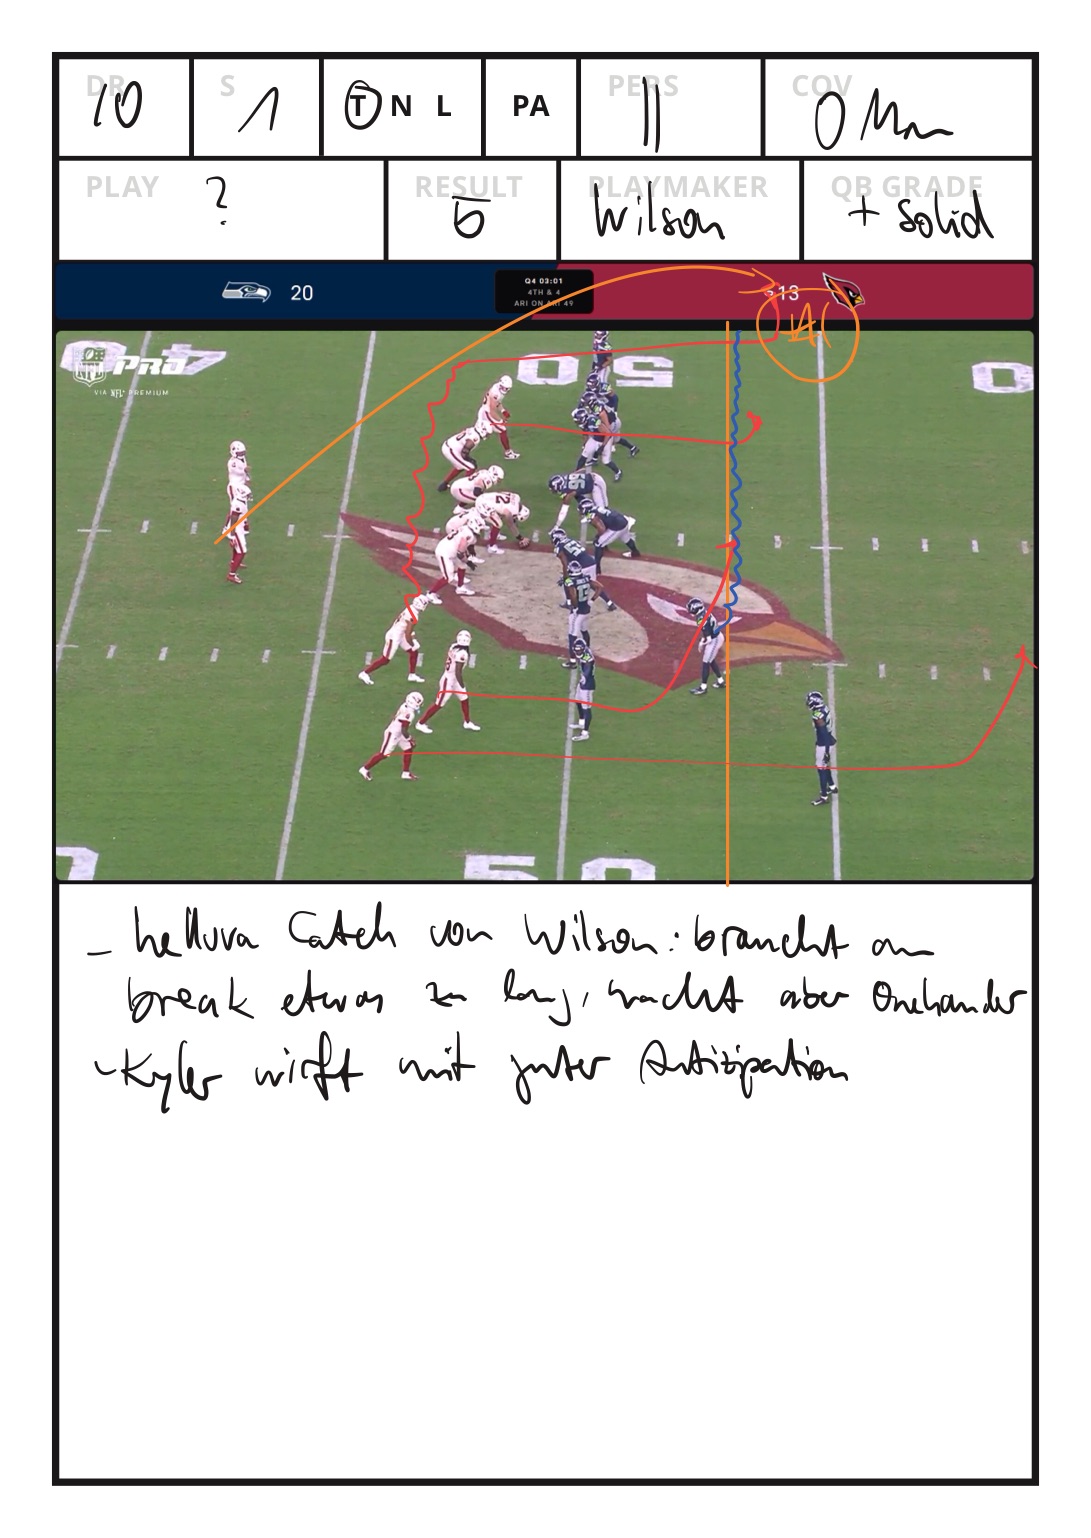 DR 10 S 1 T N L PA PERS 11 COV 0 Man
PLAY ? RESULT 5 PLAYMAKER Wilson QB GRADE + solid
20 Q4 03:01 13
4TH & 4
ARI ON ARI 49
A1
NFL PRO 40 50 0
VIA NFL+ PREMIUM
50
- helluva Catch von Wilson: braucht am
break etwas zu lang, macht aber Onehander
- Kyler wirft mit guter Antizipation